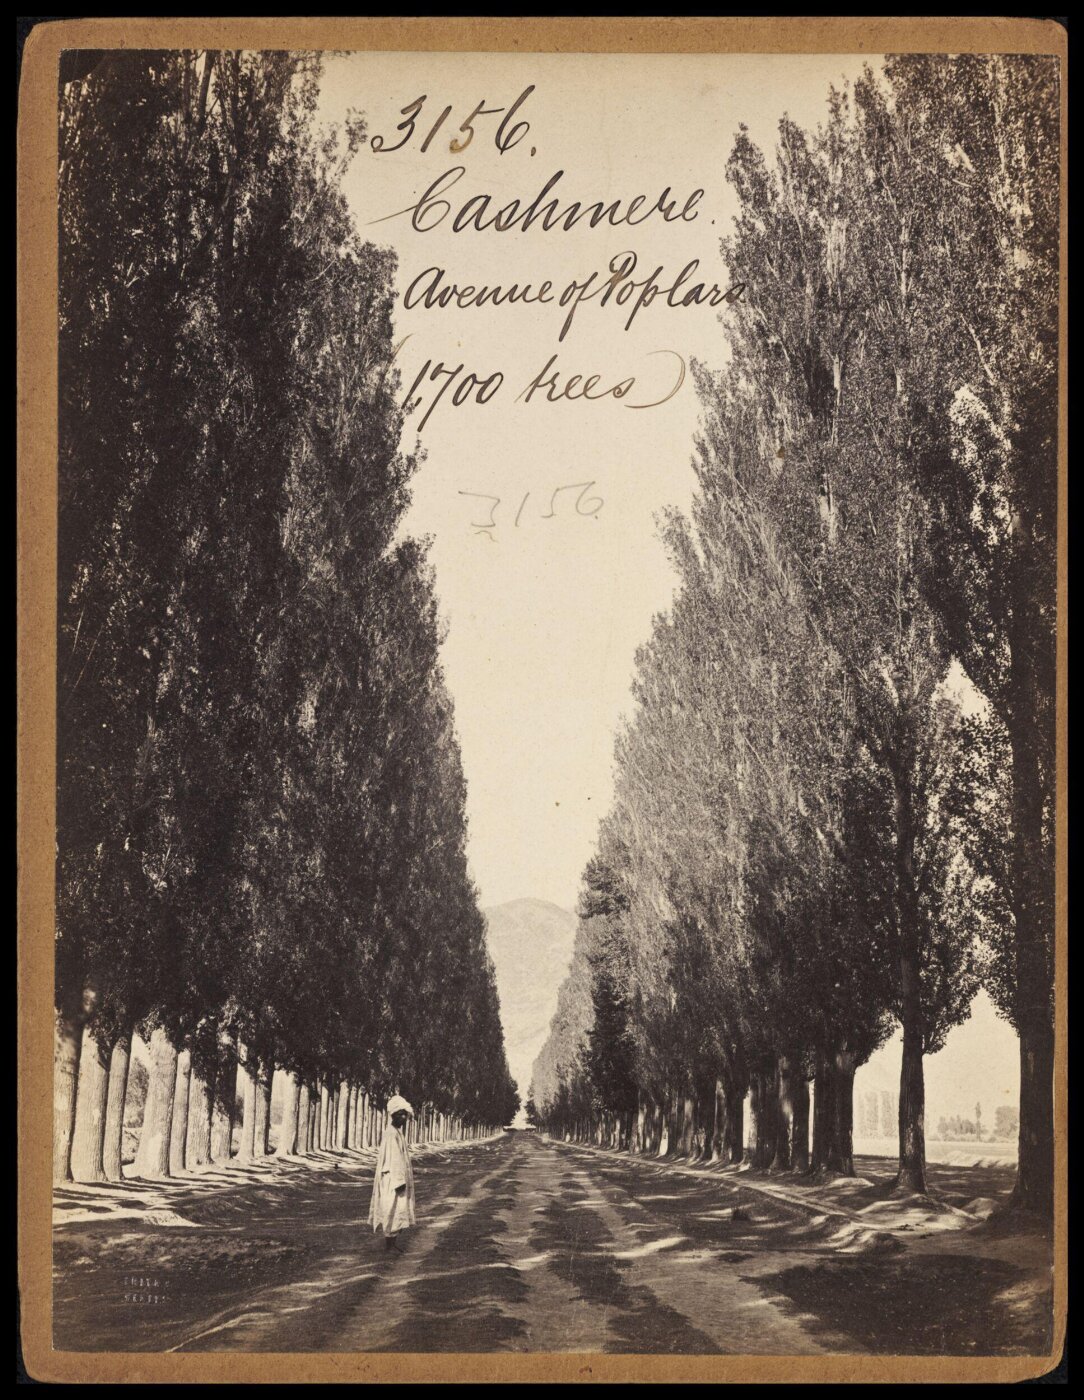 3156.
Cashmere.
Avenue of Poplars
(1700 trees)
3156